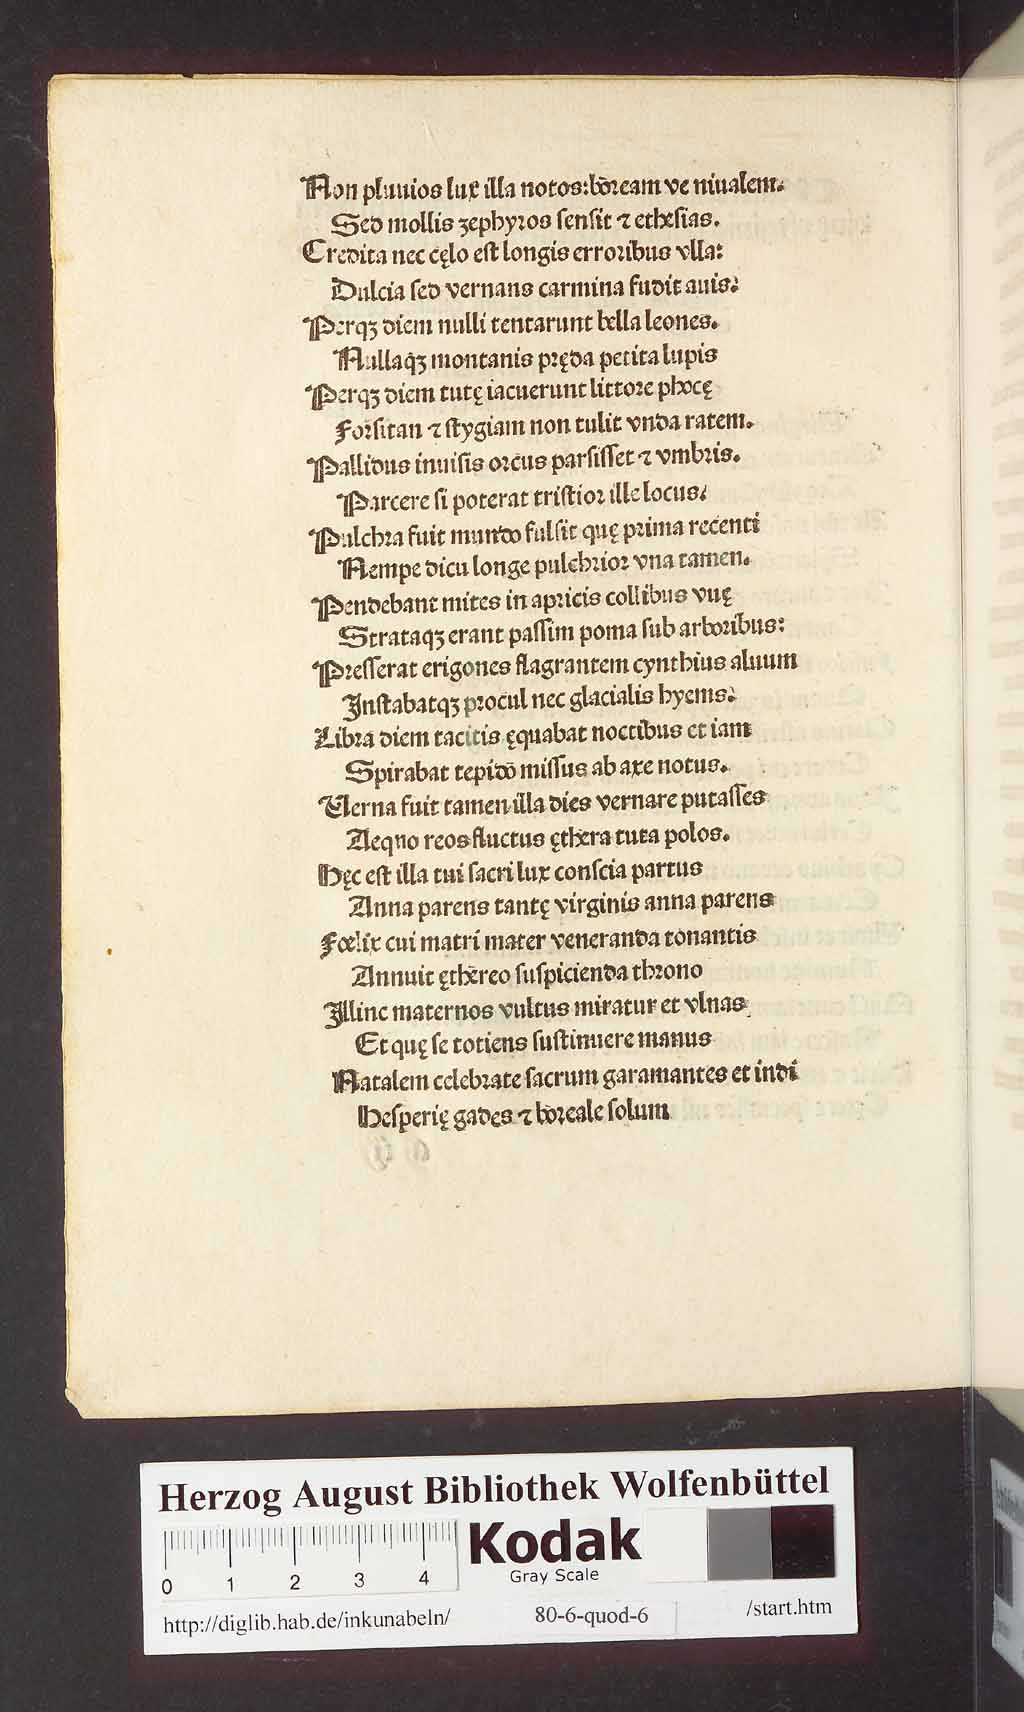 Non pluuios lux illa notos: boream ve niualem.
Sed mollis zephyros sensit ⁊ ethesias.
Credita nec cęlo est longis erroribus vlla:
Dulcia sed vernans carmina fudit auis:
Perqꝫ diem nulli tentarunt bella leones.
Nullaqꝫ montanis pręda petita lupis
Perqꝫ diem tutę iacuerunt littore phocę
Forsitan ⁊ stygiam non tulit vnda ratem.
Pallidus inuisis orcus parsisset ⁊ vmbris.
Parcere si poterat tristior ille locus:
Pulchra fuit mundo fulsit quę prima recenti
Nempe dicu longe pulchrior vna tamen.
Pendebant mites in apricis collibus vuę
Strataqꝫ erant passim poma sub arboribus:
Presserat erigones flagrantem cynthius aluum
Instabatqꝫ procul nec glacialis hyems:
Libra diem tacitis ęquabat noctibus et iam
Spirabat tepido missus ab axe notus.
Verna fuit tamen illa dies vernare putasses
Aeqno reos fluctus ęthera tuta polos.
Hęc est illa tui sacri lux conscia partus
Anna parens tantę virginis anna parens
Fœlix cui matri mater veneranda tonantis
Annuit ęthereo suspicienda throno
Illinc maternos vultus miratur et vlnas
Et quę se totiens sustinuere manus
Natalem celebrate sacrum garamantes et indi
Hesperię gades ⁊ boreale solum
Herzog August Bibliothek Wolfenbüttel
0 1 2 3 4
Kodak
Gray Scale
http://diglib.hab.de/inkunabeln/ 80-6-quod-6 /start.htm